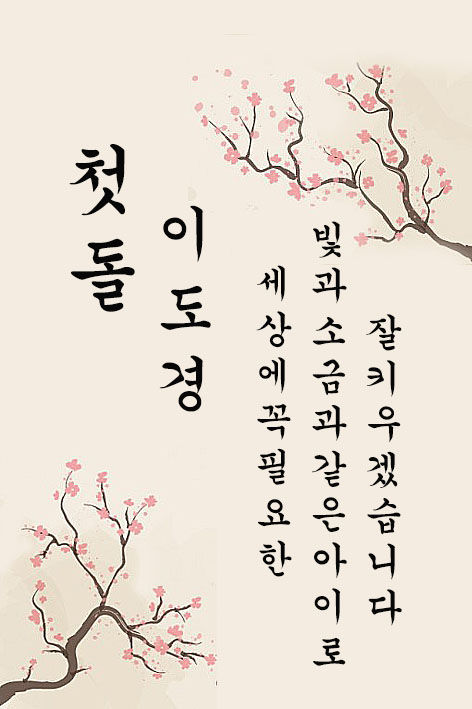 첫돌
이도경
세상에꼭필요한
빛과소금과같은아이로
잘키우겠습니다